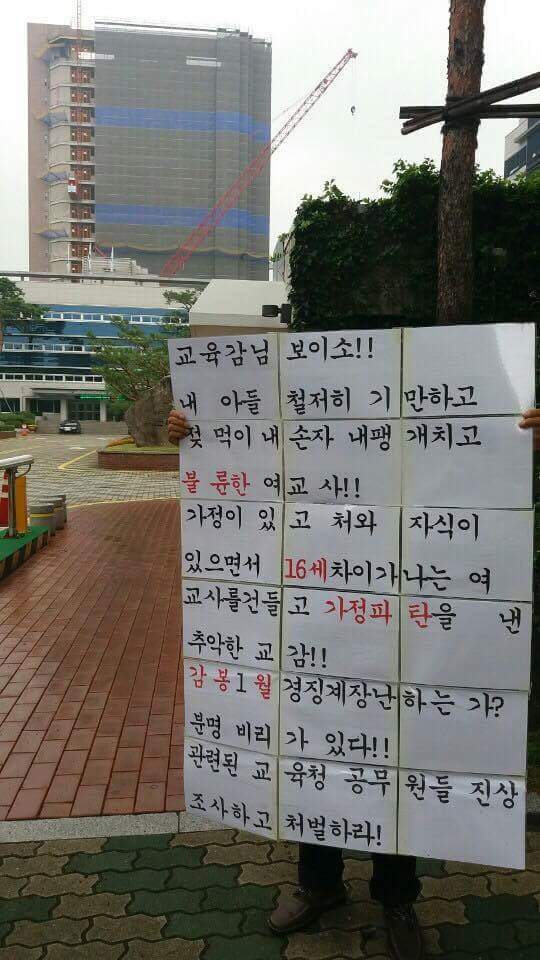 교육감님 보이소!!
내 아들 철저히 기만하고
젖먹이 내 손자 내팽개치고
불륜한 여교사!!
가정이 있고 처와 자식이
있으면서 16세차이가나는 여
교사를건들고 가정파탄을 낸
추악한 교감!!
감봉1월 경징계장난하는가?
분명 비리가 있다!!
관련된 교육청 공무원들 진상
조사하고 처벌하라!